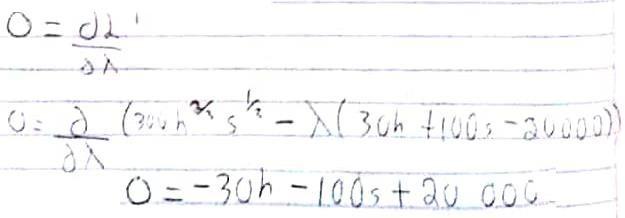 0 = ∂L/∂λ
0 = ∂/∂λ (300h^{2/3} s^{1/2} - λ(30h + 100s - 20000))
0 = -30h - 100s + 20 000